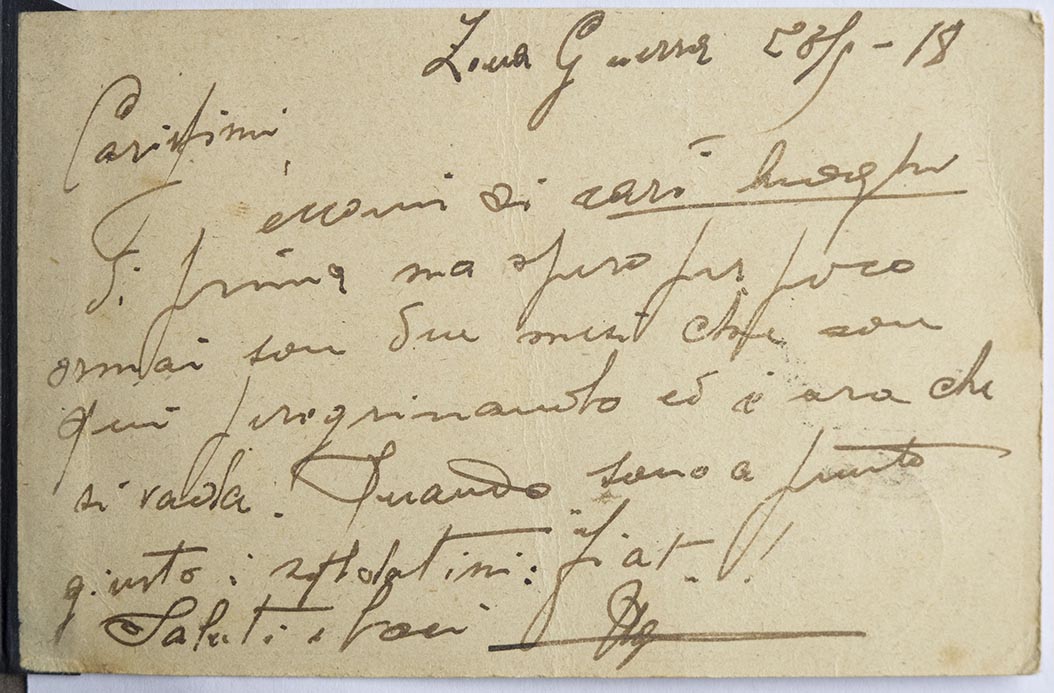 Zona Guerra - 18
Carissimi
eccomi di cari luoghi
Di prima ma spero per poco
ormai son due mesi che son
qui peregrinando ed è ora che
si vada. Quando sono a punto
giusto i soldatini: fiat!
Saluti e baci